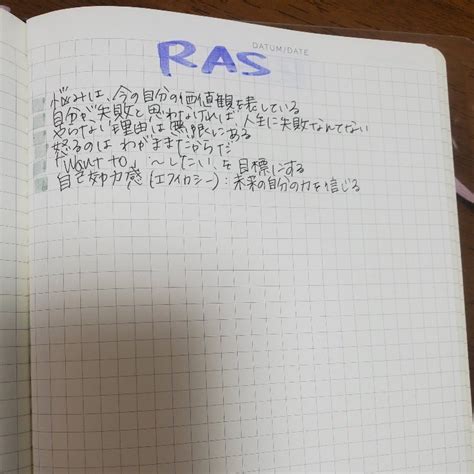 DATUM/DATE
RAS
悩みは、今の自分の価値観を表している
自分が失敗と思わなければ、人生に失敗なんてない
やらない理由は無限にある
怒るのはわがままだからだ
「want to」〜したい、を目標にする
自己効力感(エフィカシー):未来の自分の力を信じる